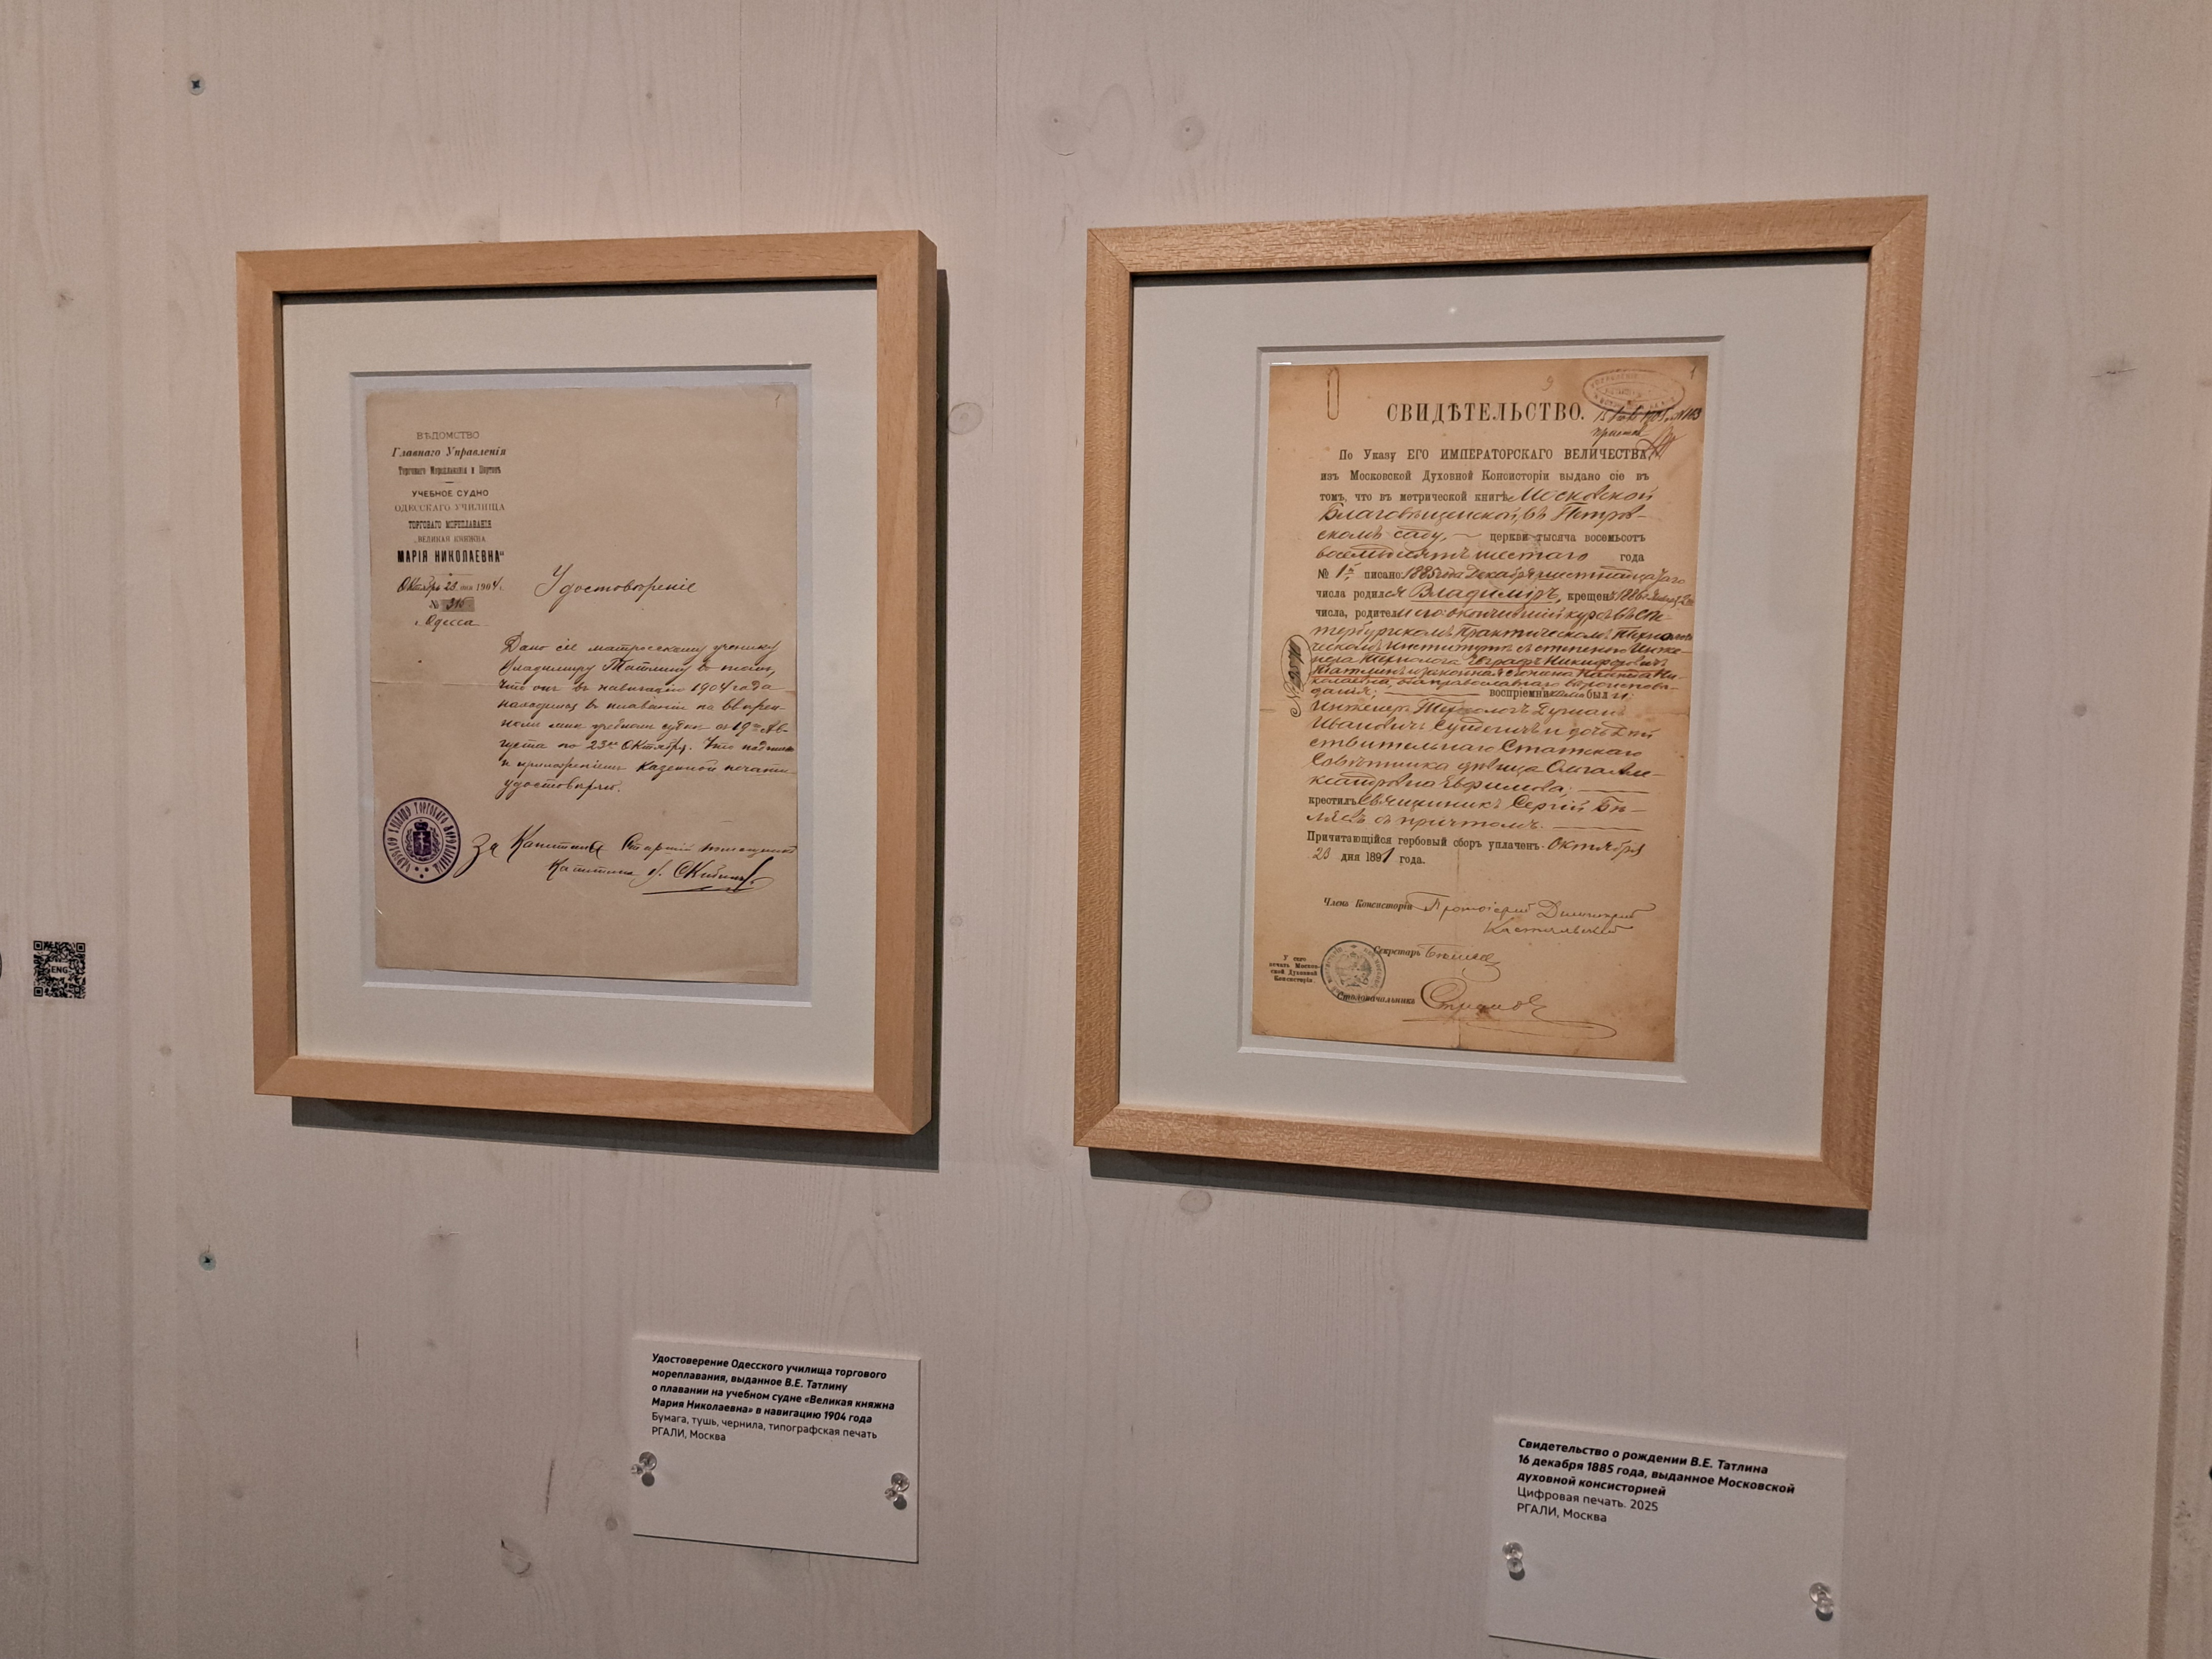 ВѢДОМСТВО
Главнаго Управленія
Торговаго Мореплаванія и Портовъ
УЧЕБНОЕ СУДНО
ОДЕССКАГО УЧИЛИЩА
ТОРГОВАГО МОРЕПЛАВАНІЯ
„ВЕЛИКАЯ КНЯЖНА
МАРІЯ НИКОЛАЕВНА"
Октября 23 дня 1904 г.
№ 315
г. Одесса
Удостовѣреніе
Дано сіе матросскому ученику
Владимиру Татлину въ томъ,
что онъ въ навигацію 1904 года
находился въ плаваніи на ввѣрен-
номъ мнѣ учебномъ суднѣ съ 19го Ав-
густа по 23ее Октября. Что подписью
и приложеніемъ казенной печати
удостовѣряю.
За Капитана Старшій помощникъ
Капитана
СВИДѢТЕЛЬСТВО.
По Указу ЕГО ИМПЕРАТОРСКАГО ВЕЛИЧЕСТВА,
изъ Московской Духовной Консисторіи выдано сіе въ
томъ, что въ метрической книгѣ Московской
Благовѣщенской, въ Петров-
скомъ саду, церкви тысяча восемьсотъ
восемьдесятъ шестаго года
№ 1й писано: 1885 года Декабря шестнадцатаго
числа родился Владиміръ, крещенъ 1886 г. Января 2го
числа, родители его: окончившій курсъ въ С.Пе-
тербургскомъ Практическомъ Технологи-
ческомъ Институтѣ съ степенью Инже-
нера Технолога Евграфъ Никифоровичъ
Татлинъ и законная жена его Надежда Ни-
колаевна, оба православнаго вѣроисповѣ-
данія; воспріемниками были:
Инженеръ Технологъ Душанъ
Ивановичъ и дочь Дѣй-
ствительнаго Статскаго
Совѣтника дѣвица Ольга Але-
ксандровна Ефимова;
крестилъ Священникъ Сергій Бѣ-
ляевъ съ причтомъ.
Причитающійся гербовый сборъ уплаченъ. Октября
23 дня 1891 года.
Членъ Консисторіи Протоіерей Димитрій
Кастальскій
Секретарь
У сего
печать Москов-
ской Духовной
Консисторіи.
Столоначальникъ
ENG
Удостоверение Одесского училища торгового
мореплавания, выданное В.Е. Татлину
о плавании на учебном судне «Великая княжна
Мария Николаевна» в навигацию 1904 года
Бумага, тушь, чернила, типографская печать
РГАЛИ, Москва
Свидетельство о рождении В.Е. Татлина
16 декабря 1885 года, выданное Московской
духовной консисторией
Цифровая печать. 2025
РГАЛИ, Москва